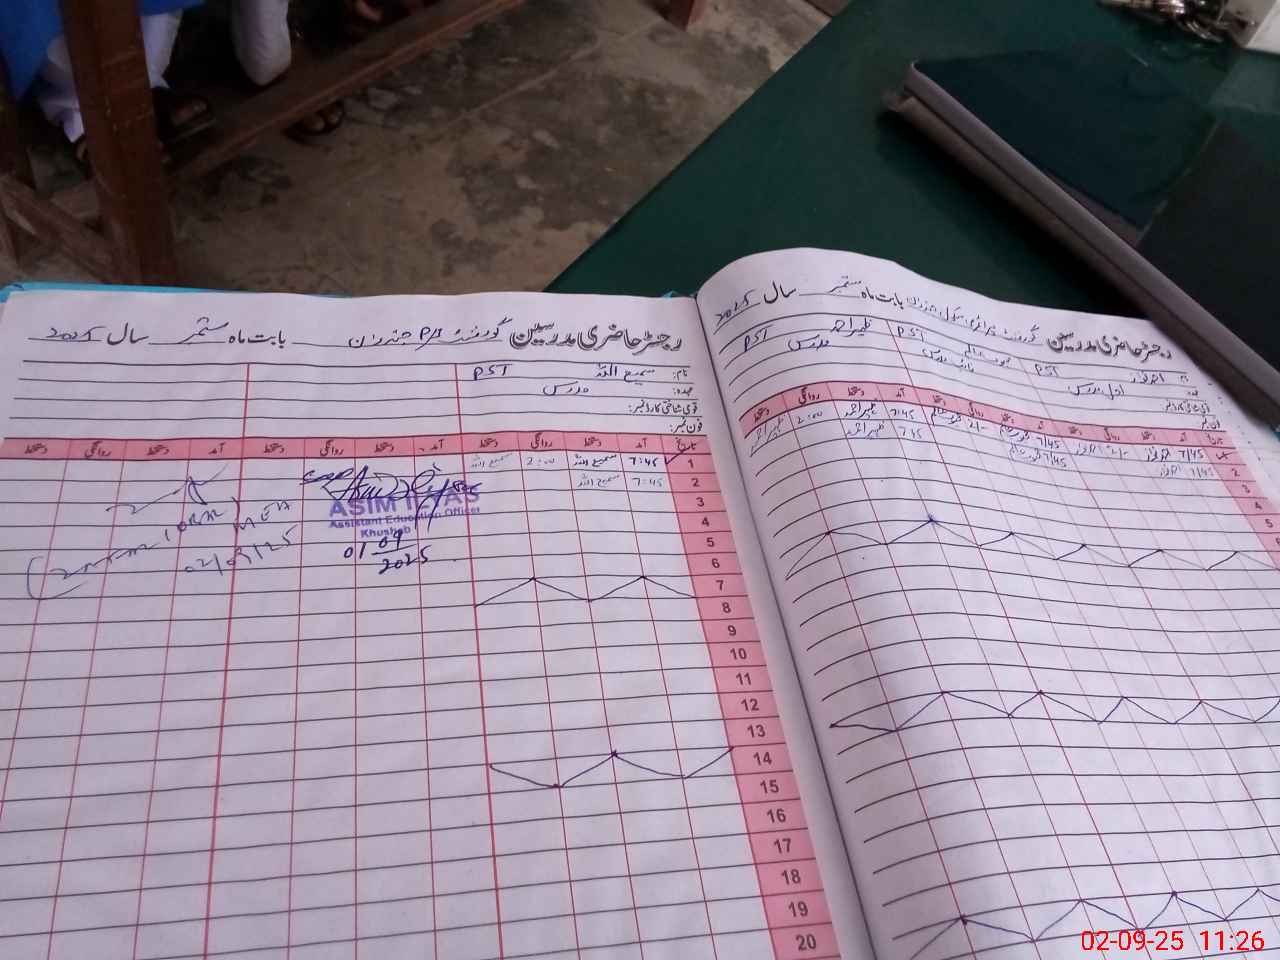 رجسٹر حاضری مدرسین گورنمنٹ P/S بابت ماہ ستمبر سال 2025
نام: سمیع اللہ PST
عہدہ: مدرس
قومی شناختی کارڈ نمبر:
فون نمبر:
تاریخ آمد دستخط روانگی دستخط آمد دستخط روانگی دستخط آمد دستخط روانگی دستخط
1 7:45 سمیع اللہ 2:00 سمیع اللہ
2 7:45 سمیع اللہ
3
4
5
6
7
8
9
10
11
12
13
14
15
16
17
18
19
20
ASIM ILYAS
Assistant Education Officer
Khushab
01 09
2025
MEA
02/09/25
رجسٹر حاضری مدرسین گورنمنٹ پرائمری سکول بابت ماہ ستمبر سال 2025
نام: PST PST ظہیر احمد PST
عہدہ: اول مدرس نائب مدرس مدرس
قومی شناختی کارڈ نمبر:
فون نمبر:
تاریخ آمد دستخط روانگی دستخط آمد دستخط روانگی دستخط آمد دستخط روانگی دستخط
7/45 2/- 7/45 2/- 7:45 ظہیر احمد 2:00 ظہیر احمد
2 7/45 7/45 7:45 ظہیر احمد
3
4
5
6
02-09-25 11:26